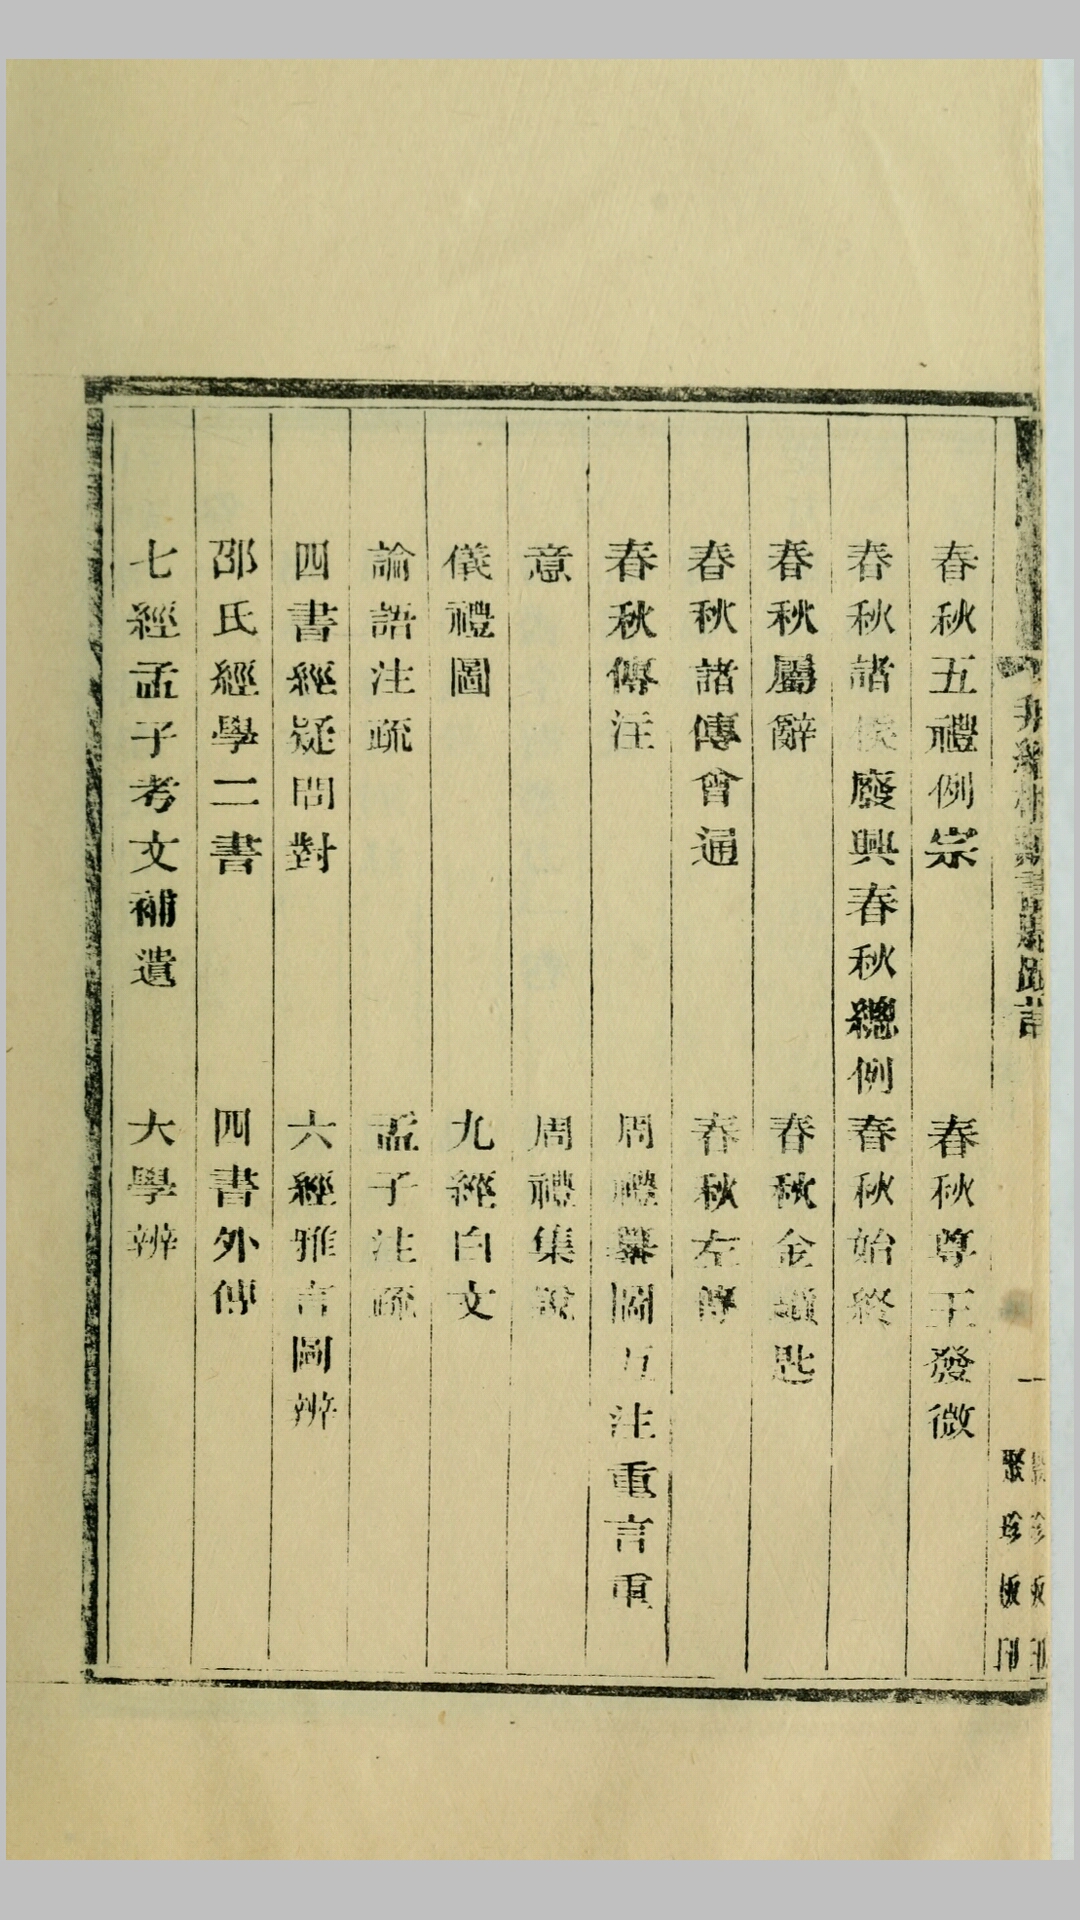 春秋五禮例宗 春秋尊王發微
春秋諸侯廢興春秋總例 春秋始終
春秋屬辭 春秋金鎖匙
春秋諸傳會通 春秋左傳
春秋傳注 周禮纂圖互注重言重
意 周禮集說
儀禮圖 九經白文
論語注疏 孟子注疏
四書經疑問對 六經雅言圖辨
邵氏經學二書 四書外傳
七經孟子考文補遺 大學辨
聚珍板印